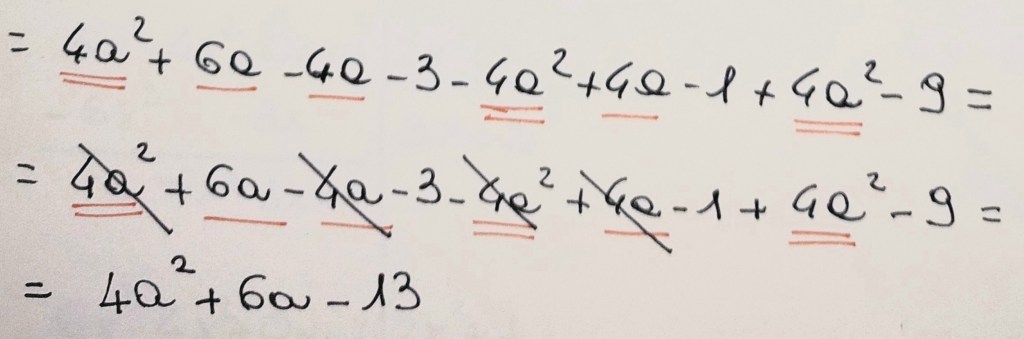 = 4a² + 6a - 4a - 3 - 4a² + 4a - 1 + 4a² - 9 =
= 4a² + 6a - 4a - 3 - 4a² + 4a - 1 + 4a² - 9 =
= 4a² + 6a - 13